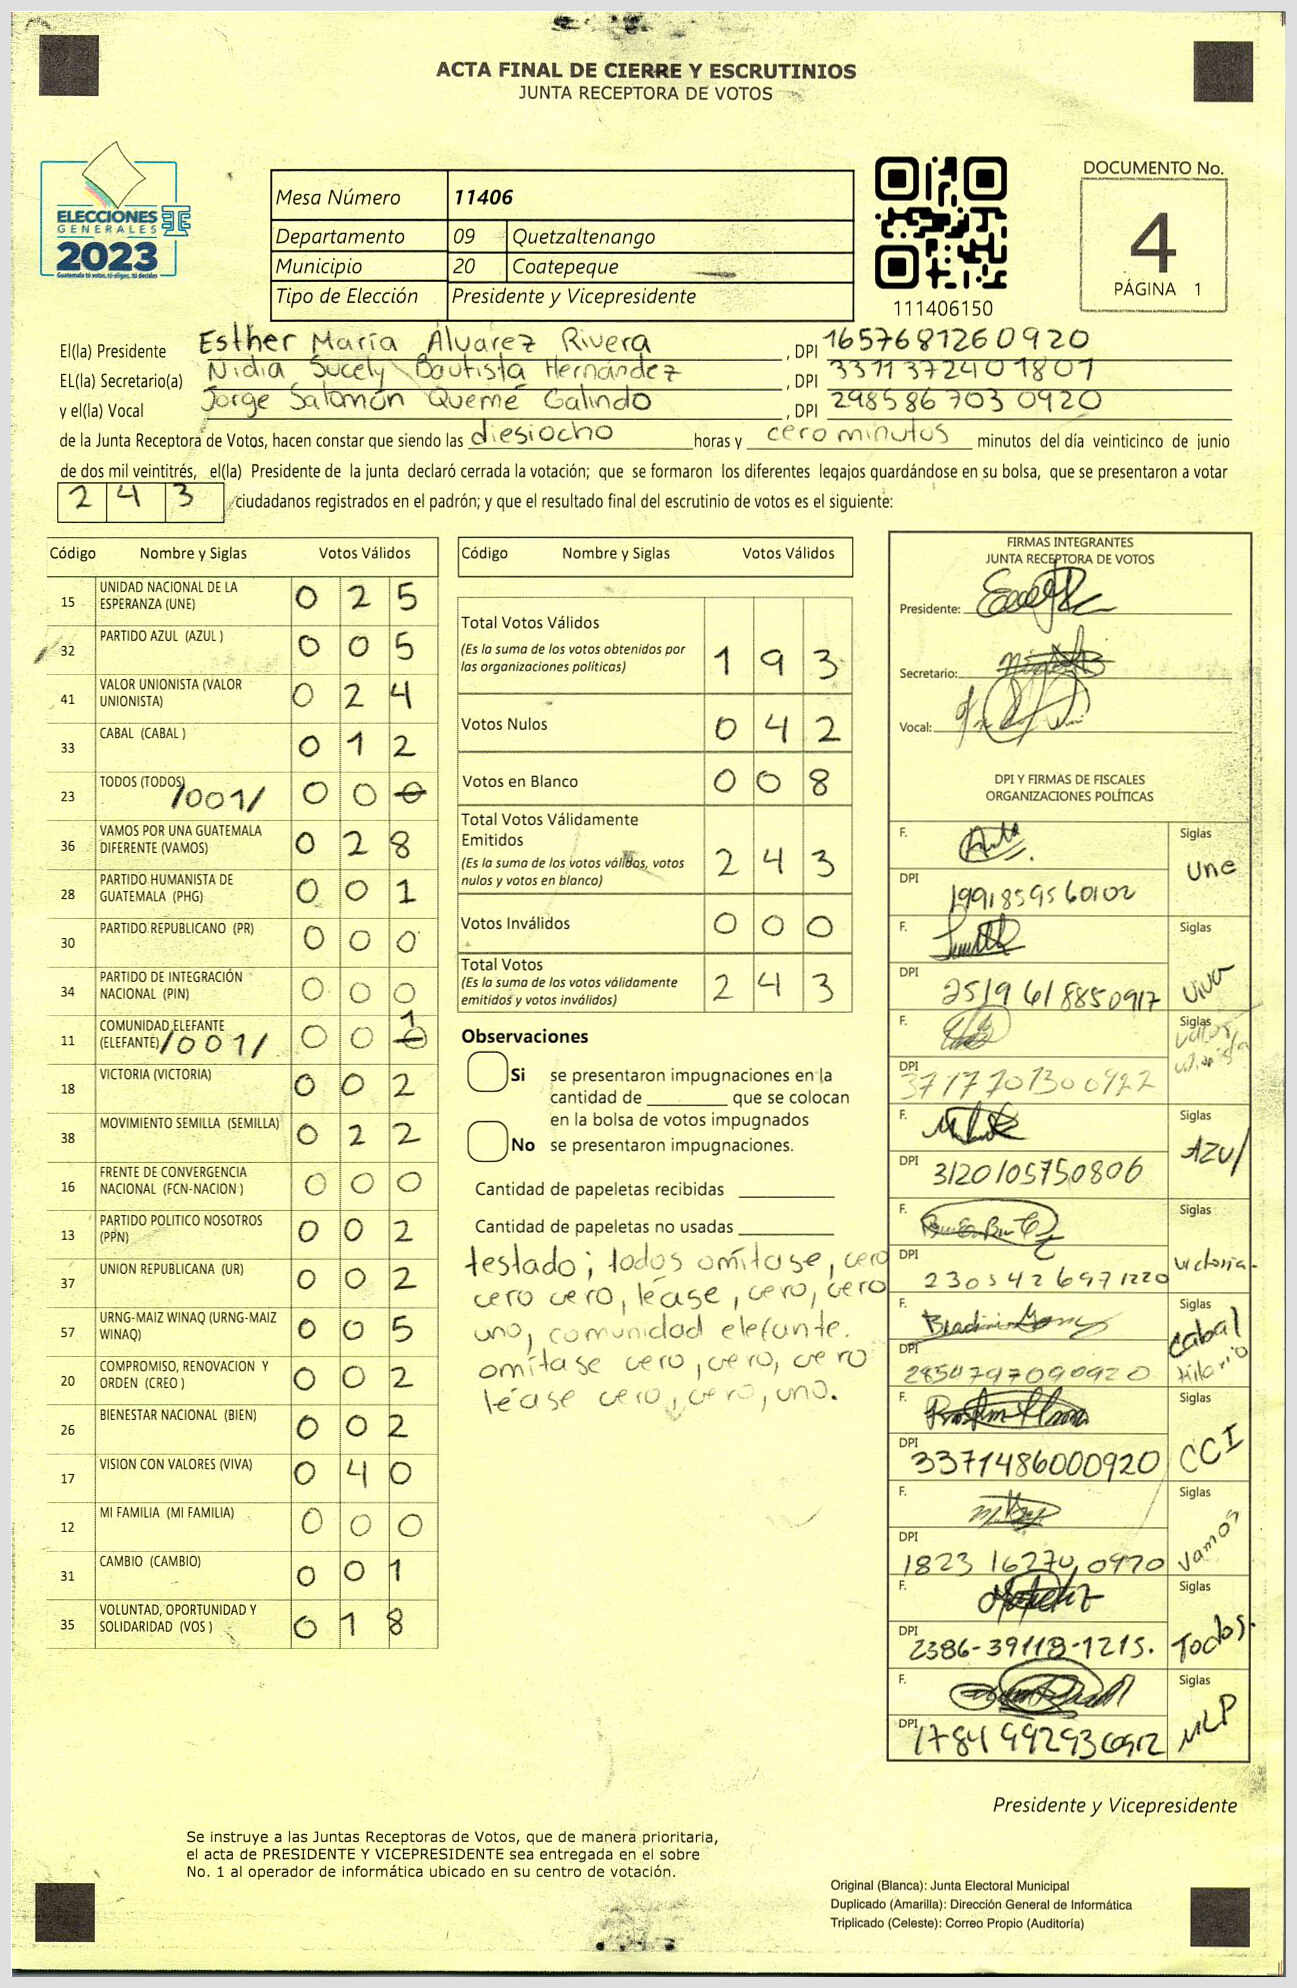 ACTA FINAL DE CIERRE Y ESCRUTINIOS
JUNTA RECEPTORA DE VOTOS
ELECCIONES
GENERALES
2023
Guatemala tú votas, tú eliges, tú decides
Mesa Número 11406
Departamento 09 Quetzaltenango
Municipio 20 Coatepeque
Tipo de Elección Presidente y Vicepresidente
111406150
DOCUMENTO No.
4
PÁGINA 1
El(la) Presidente Esther María Álvarez Rivera , DPI 1657681260920
EL(la) Secretario(a) Nidia Sucely Bautista Hernández , DPI 3371372401801
y el(la) Vocal Jorge Salomón Quemé Galindo , DPI 2985867030920
de la Junta Receptora de Votos, hacen constar que siendo las diesiocho horas y cero minutos minutos del día veinticinco de junio
de dos mil veintitrés, el(la) Presidente de la junta declaró cerrada la votación; que se formaron los diferentes legajos guardándose en su bolsa, que se presentaron a votar
243 ciudadanos registrados en el padrón; y que el resultado final del escrutinio de votos es el siguiente:
Código Nombre y Siglas Votos Válidos
15 UNIDAD NACIONAL DE LA ESPERANZA (UNE) 0 2 5
32 PARTIDO AZUL (AZUL ) 0 0 5
41 VALOR UNIONISTA (VALOR UNIONISTA) 0 2 4
33 CABAL (CABAL ) 0 1 2
23 TODOS (TODOS) /001/ 0 0 0
36 VAMOS POR UNA GUATEMALA DIFERENTE (VAMOS) 0 2 8
28 PARTIDO HUMANISTA DE GUATEMALA (PHG) 0 0 1
30 PARTIDO REPUBLICANO (PR) 0 0 0
34 PARTIDO DE INTEGRACIÓN NACIONAL (PIN) 0 0 0
11 COMUNIDAD ELEFANTE (ELEFANTE) /001/ 0 0 0 1
18 VICTORIA (VICTORIA) 0 0 2
38 MOVIMIENTO SEMILLA (SEMILLA) 0 2 2
16 FRENTE DE CONVERGENCIA NACIONAL (FCN-NACION ) 0 0 0
13 PARTIDO POLITICO NOSOTROS (PPN) 0 0 2
37 UNION REPUBLICANA (UR) 0 0 2
57 URNG-MAIZ WINAQ (URNG-MAIZ WINAQ) 0 0 5
20 COMPROMISO, RENOVACION Y ORDEN (CREO ) 0 0 2
26 BIENESTAR NACIONAL (BIEN) 0 0 2
17 VISION CON VALORES (VIVA) 0 4 0
12 MI FAMILIA (MI FAMILIA) 0 0 0
31 CAMBIO (CAMBIO) 0 0 1
35 VOLUNTAD, OPORTUNIDAD Y SOLIDARIDAD (VOS ) 0 1 8
Código Nombre y Siglas Votos Válidos
Total Votos Válidos
(Es la suma de los votos obtenidos por
las organizaciones políticas) 1 9 3
Votos Nulos 0 4 2
Votos en Blanco 0 0 8
Total Votos Válidamente
Emitidos
(Es la suma de los votos válidos, votos
nulos y votos en blanco) 2 4 3
Votos Inválidos 0 0 0
Total Votos
(Es la suma de los votos válidamente
emitidos y votos inválidos) 2 4 3
Observaciones
Si se presentaron impugnaciones en la
cantidad de ________ que se colocan
en la bolsa de votos impugnados
No se presentaron impugnaciones.
Cantidad de papeletas recibidas
Cantidad de papeletas no usadas
testado; todos omítase, cero
cero cero, léase, cero, cero
uno, comunidad elefante.
omítase cero, cero, cero
léase cero, cero, uno.
FIRMAS INTEGRANTES
JUNTA RECEPTORA DE VOTOS
Presidente:
Secretario:
Vocal:
DPI Y FIRMAS DE FISCALES
ORGANIZACIONES POLÍTICAS
F. Siglas une
DPI 1991859560102
F. Siglas VIVA
DPI 2519618850917
F. Siglas Valor Unionista
DPI 3717701300922
F. Siglas AZUl
DPI 3120105750806
F. Siglas Victoria
DPI 2305426971220
F. Siglas Cabal
DPI 2850797090920 Hilario
F. Siglas CCI
DPI 3371486000920
F. Siglas Vamos
DPI 1823162700920
F. Siglas Todos.
DPI 2386-39118-1215.
F. Siglas MLP
DPI 1784992930912
Presidente y Vicepresidente
Se instruye a las Juntas Receptoras de Votos, que de manera prioritaria,
el acta de PRESIDENTE Y VICEPRESIDENTE sea entregada en el sobre
No. 1 al operador de informática ubicado en su centro de votación.
Original (Blanca): Junta Electoral Municipal
Duplicado (Amarilla): Dirección General de Informática
Triplicado (Celeste): Correo Propio (Auditoría)